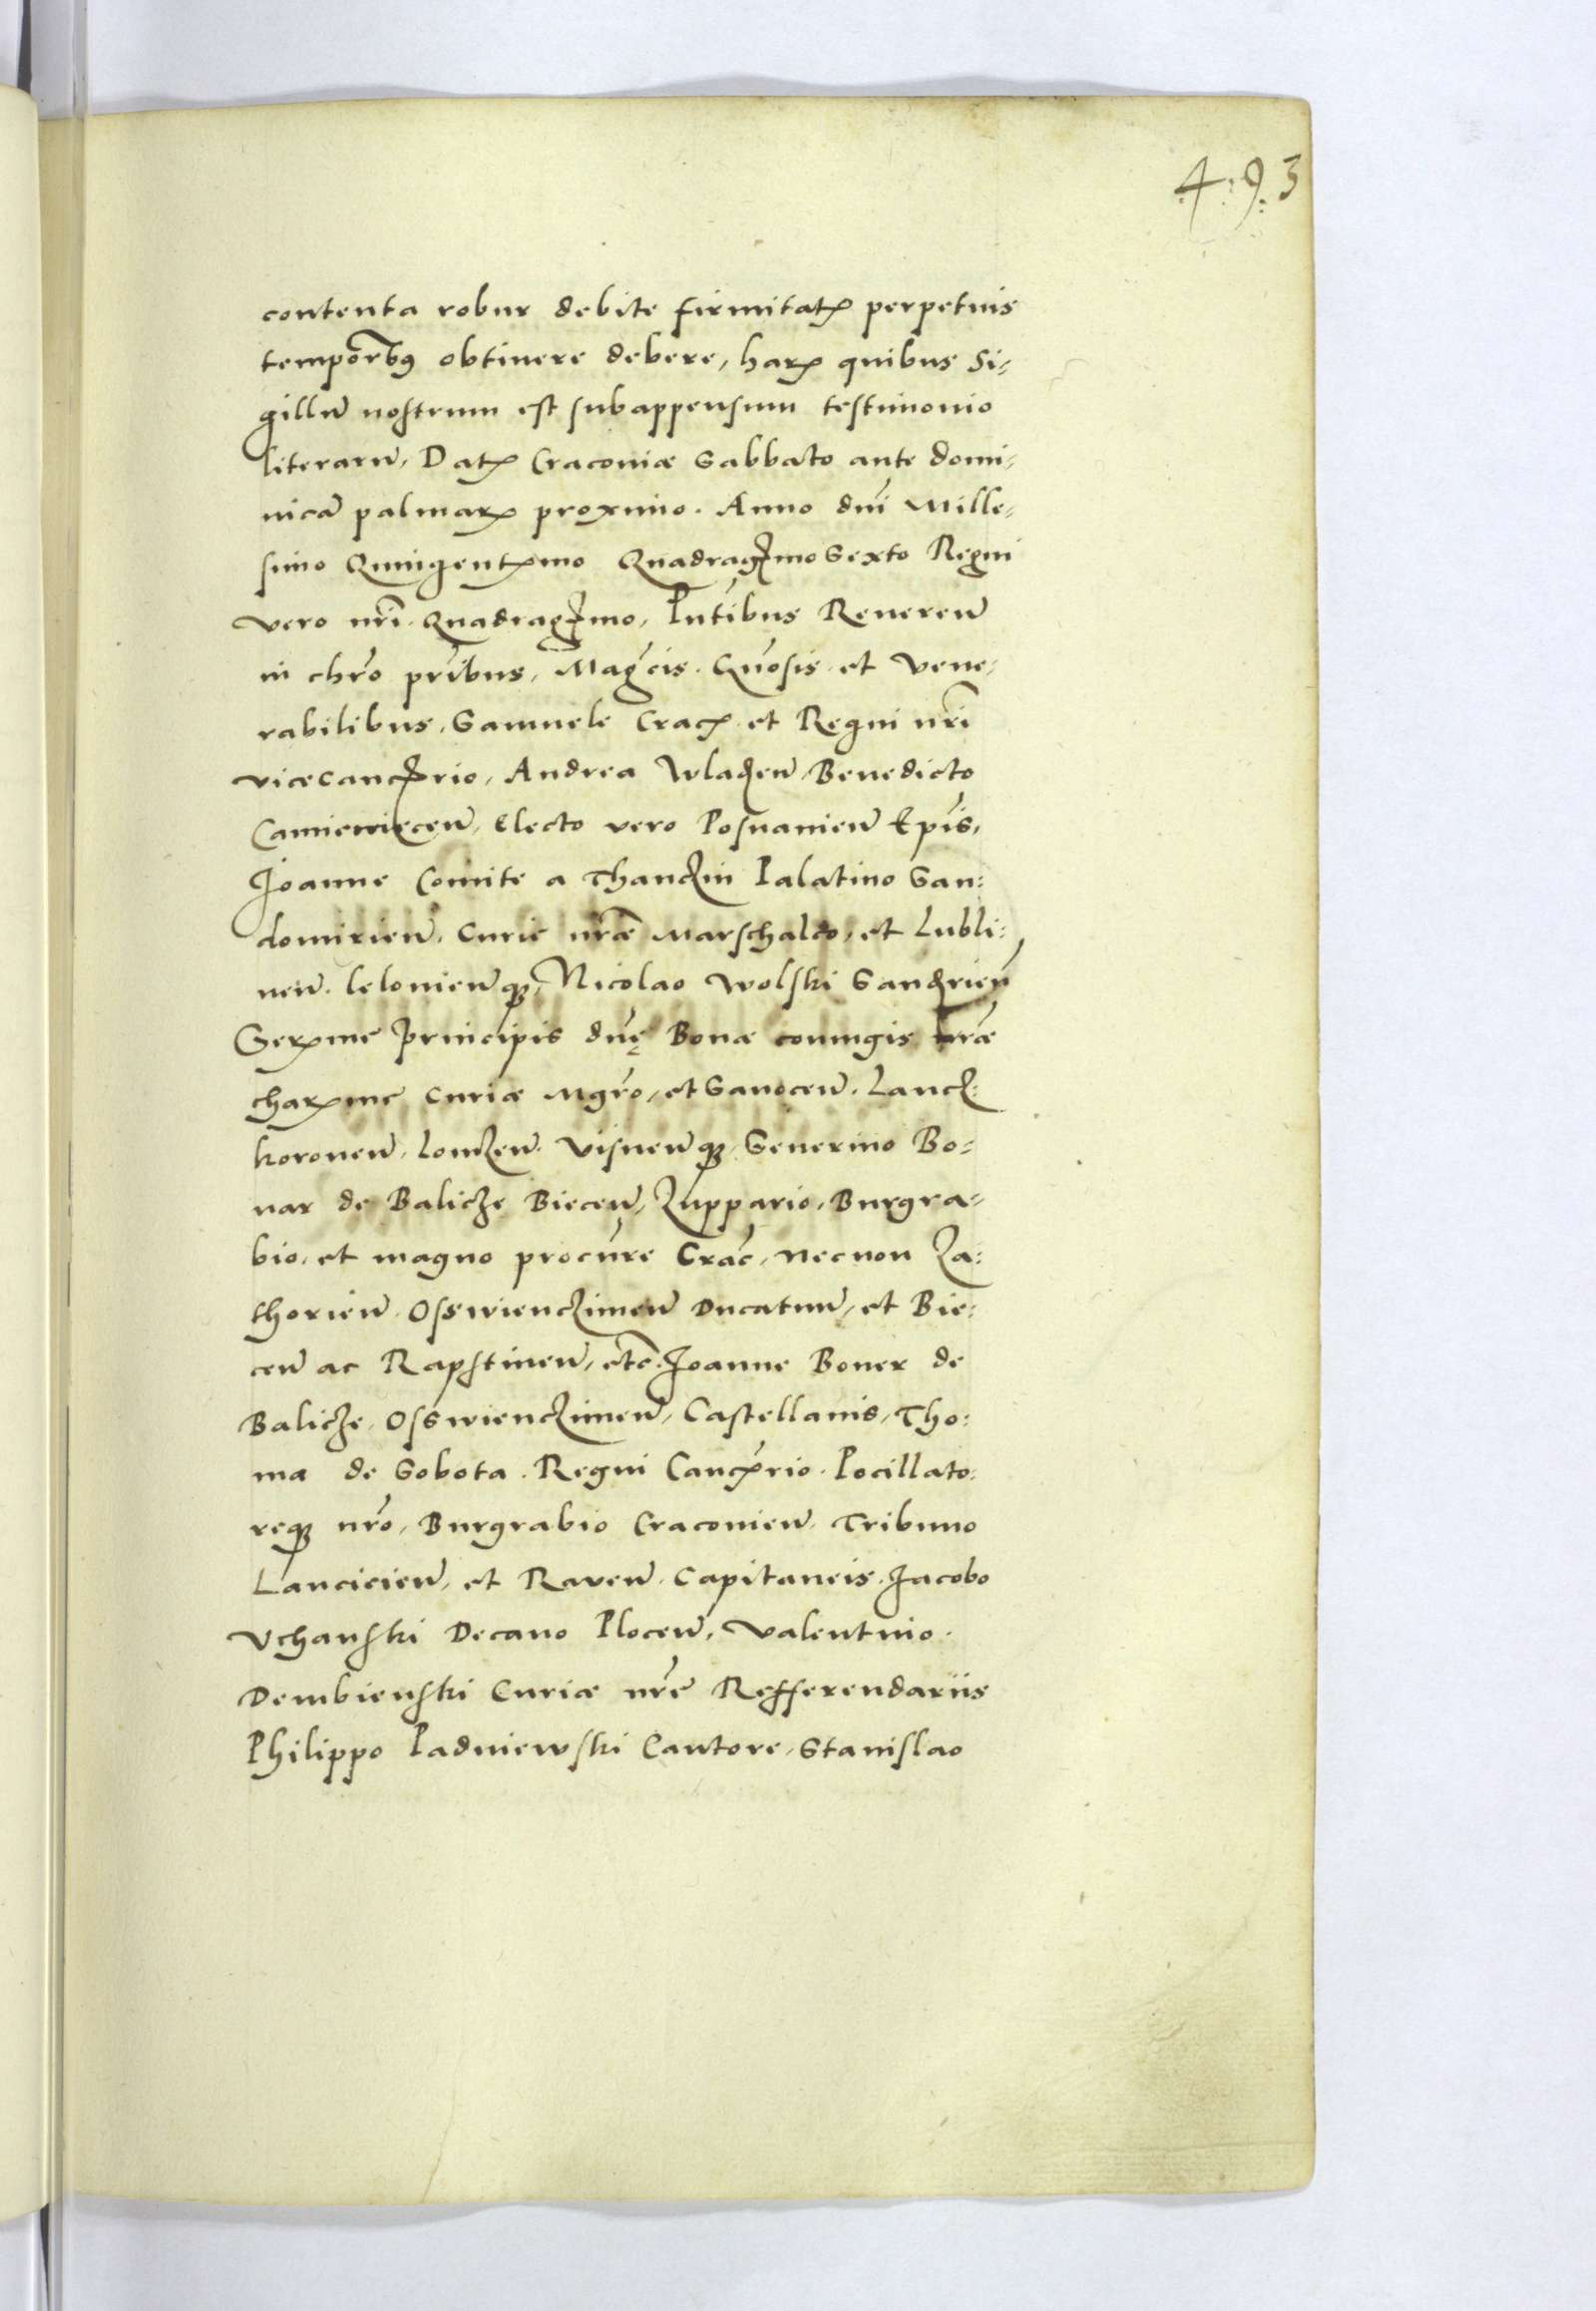 4:9:3
contenta robur debite firmitatꝭ perpetuis
temporibꝰ obtinere debere, harꝭ quibus Si-
gillū nostrum est subappensum testimonio
literarū, Datꝭ Cracouiæ Sabbato ante domi-
nicā palmarꝭ proximo. Anno dñi Mille-
simo Quingentꝭmo QuadragꝭmoSexto Regni
vero nr̃i Quadragꝭmo, Pñtibus Reueren̄
in chro pr̃ibus, Mag͂cis. Gñosis et Vene-
rabilibus, Samuele Cracꝭ et Regni nr̃i
vicecancꝭrio, Andrea Wladꝭen̄, Benedicto
Camieniecen̄, Electo vero Posnanien̄ Ep̃is,
Joanne Comite a Thanczin Palatino San-
domirien̄, Curie nr̃æ Marschalco, et Lubli-
nen̄. lelouien̄qꝫ, Nicolao Wolski Sandꝭrien̄
Serꝭme Principis dñę Bonæ coniugis nr̃æ
charꝭme Curiæ Mgr̃o, et Sanocen̄. Lancz-
koronen̄, lomzen̄. Visnen̄qꝫ, Seuerino Bo-
nar de Balicze Biecen̄, Zuppario, Burgra-
bio, et magno procur̃e Crac̄, Necnon Za-
thorien̄. Osswienczimen̄ Ducatuū, et Bie-
cen̄ ac Rapstinen̄, etc̄. Joanne Boner de
Balicze, Osswienczimen̄, Castellanis, Tho-
ma de Sobota. Regni Cancꝭrio. Pocillato-
reqꝫ nr̃o, Burgrabio Cracouien̄. Tribuno
Lancicien̄, et Rauen̄. Capitaneis. Jacobo
Vchanski Decano Plocen̄, Valentino.
Dembienski Curiæ nr̃e Refferendariis
Philippo Padniewski Cantore, Stanislao